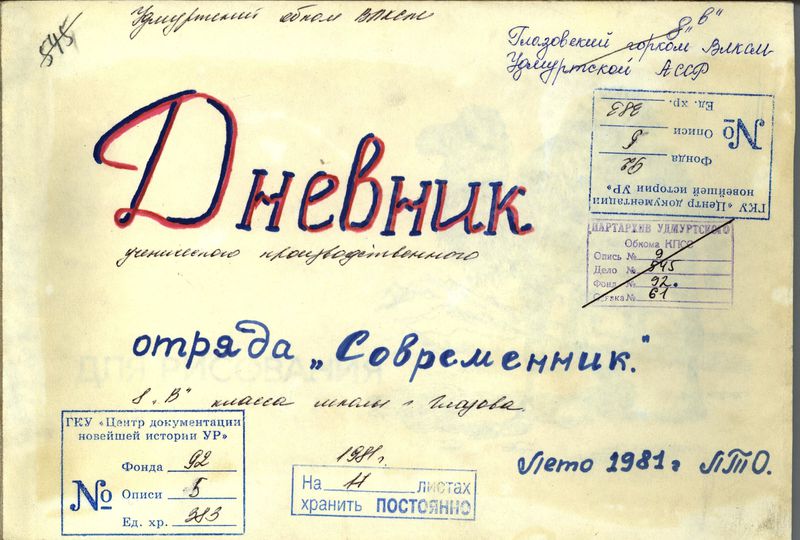 545
Удмуртский обком ВЛКСМ
8 „В"
Глазовский горком ВЛКСМ
Удмуртской АССР
ГКУ «Центр документации
новейшей истории УР»
Фонда 92
№ Описи 5
Ед. хр. 383
Дневник
ПАРТАРХИВ УДМУРТСКОГО
Обкома КПСС
Опись № 9
Дело № 545
Фонд № 92
Связка № 61
ученического производственного
отряда „Современник."
ДЛЯ РИСОВАНИЯ
8 „В" класса школы г. Глазова.
1981 г.
Лето 1981 г ЛТО.
ГКУ «Центр документации
новейшей истории УР»
Фонда 92
№ Описи 5
Ед. хр. 383
На 11 листах
хранить ПОСТОЯННО